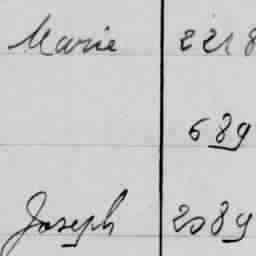 Marie 2218
689
Joseph 2089